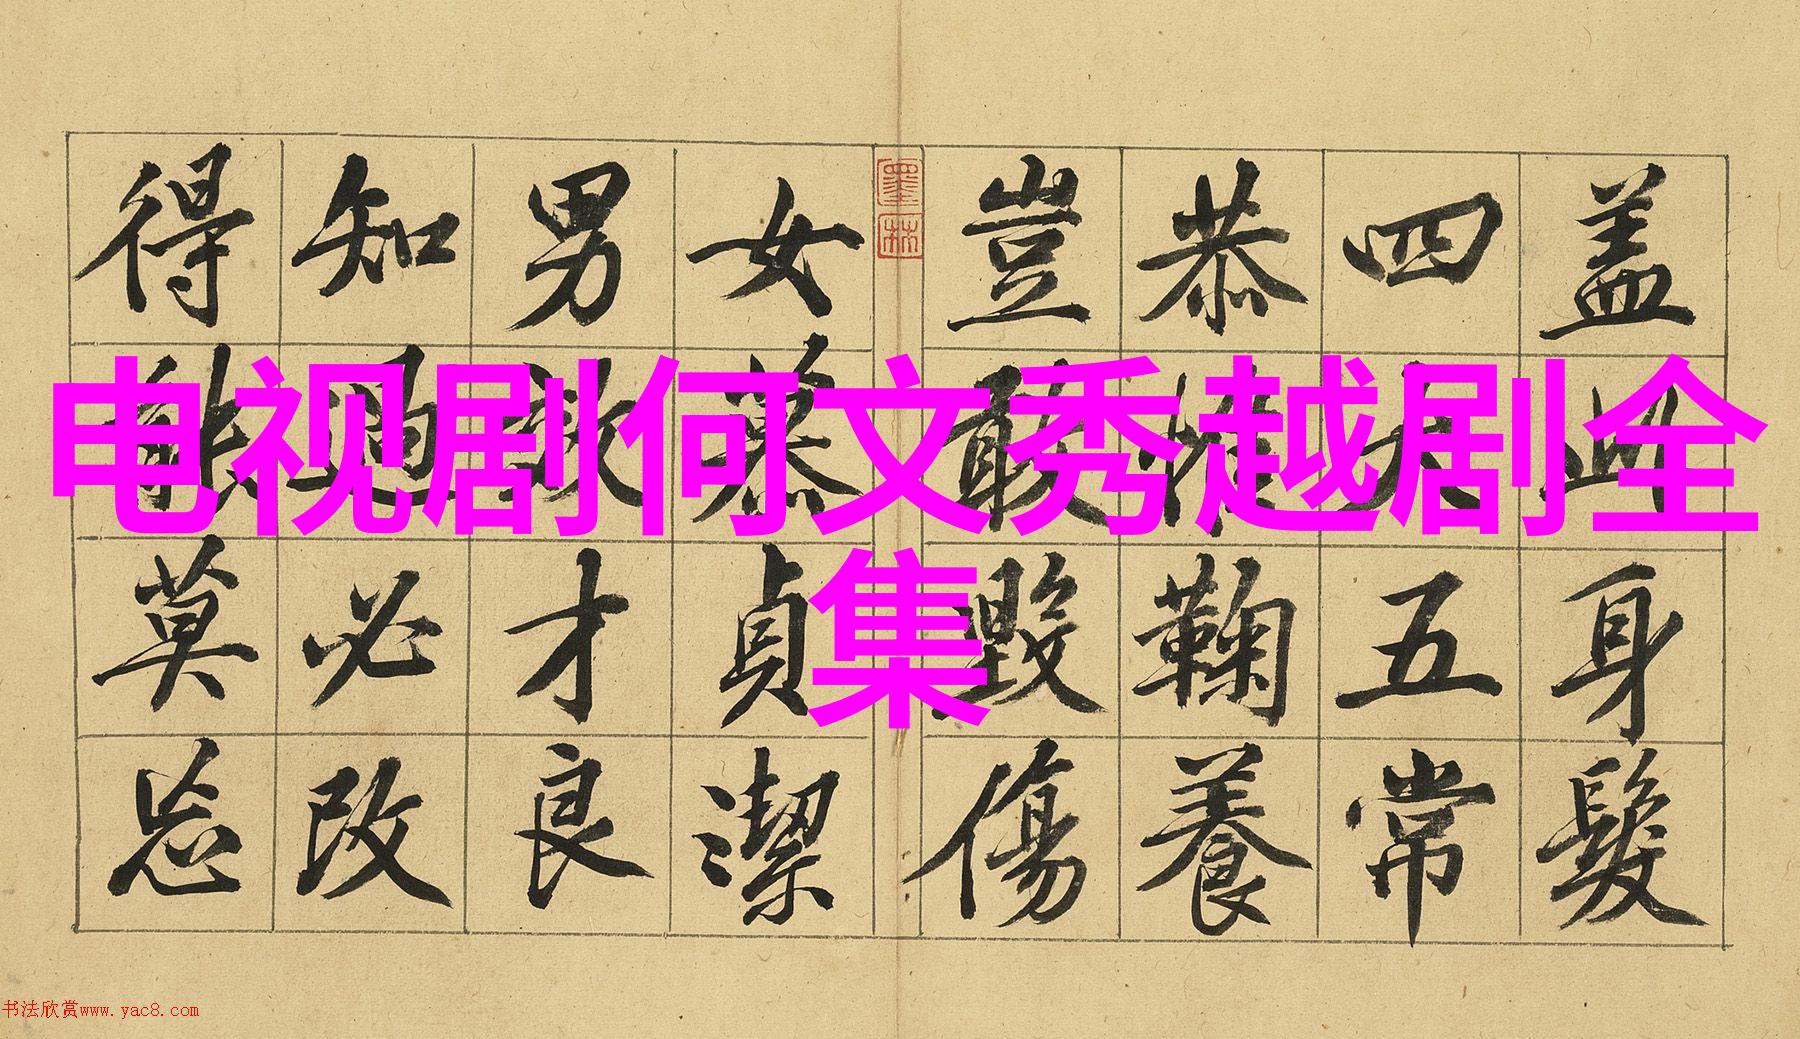 电视剧何文秀越剧全
集
盖此身髮
四大五常
恭惟鞠養
豈敢毀傷
墨林
女慕貞潔
男效才良
知過必改
得能莫忘
书法欣赏www.yac8.com